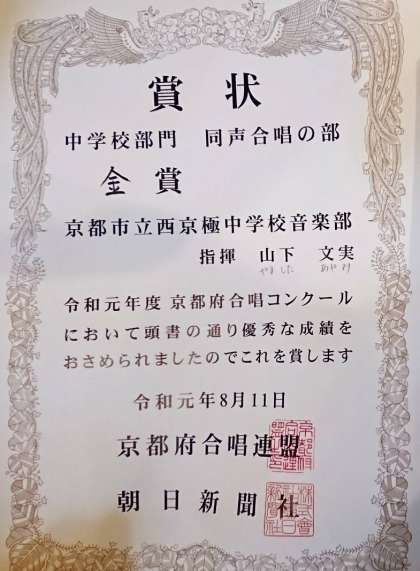 賞状
中学校部門 同声合唱の部
金賞
京都市立西京極中学校音楽部
指揮 山下 文実
やました あやみ
令和元年度 京都府合唱コンクール
において頭書の通り優秀な成績を
おさめられましたのでこれを賞します
令和元年8月11日
京都府合唱連盟
朝日新聞社